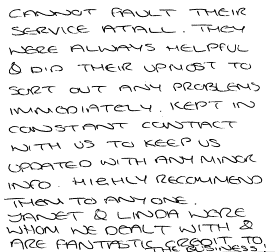 CANNOT FAULT THEIR
SERVICE ATALL. THEY
WERE ALWAYS HELPFUL
& DID THEIR UPMOST TO
SORT OUT ANY PROBLEMS
IMMEDIATELY. KEPT IN
CONSTANT CONTACT
WITH US TO KEEP US
UPDATED WITH ANY MINOR
INFO. HIGHLY RECOMMEND
THEM TO ANYONE.
JANET & LINDA WERE
WHOM WE DEALT WITH &
ARE FANTASTIC CREDIT TO
THE BUSINESS!